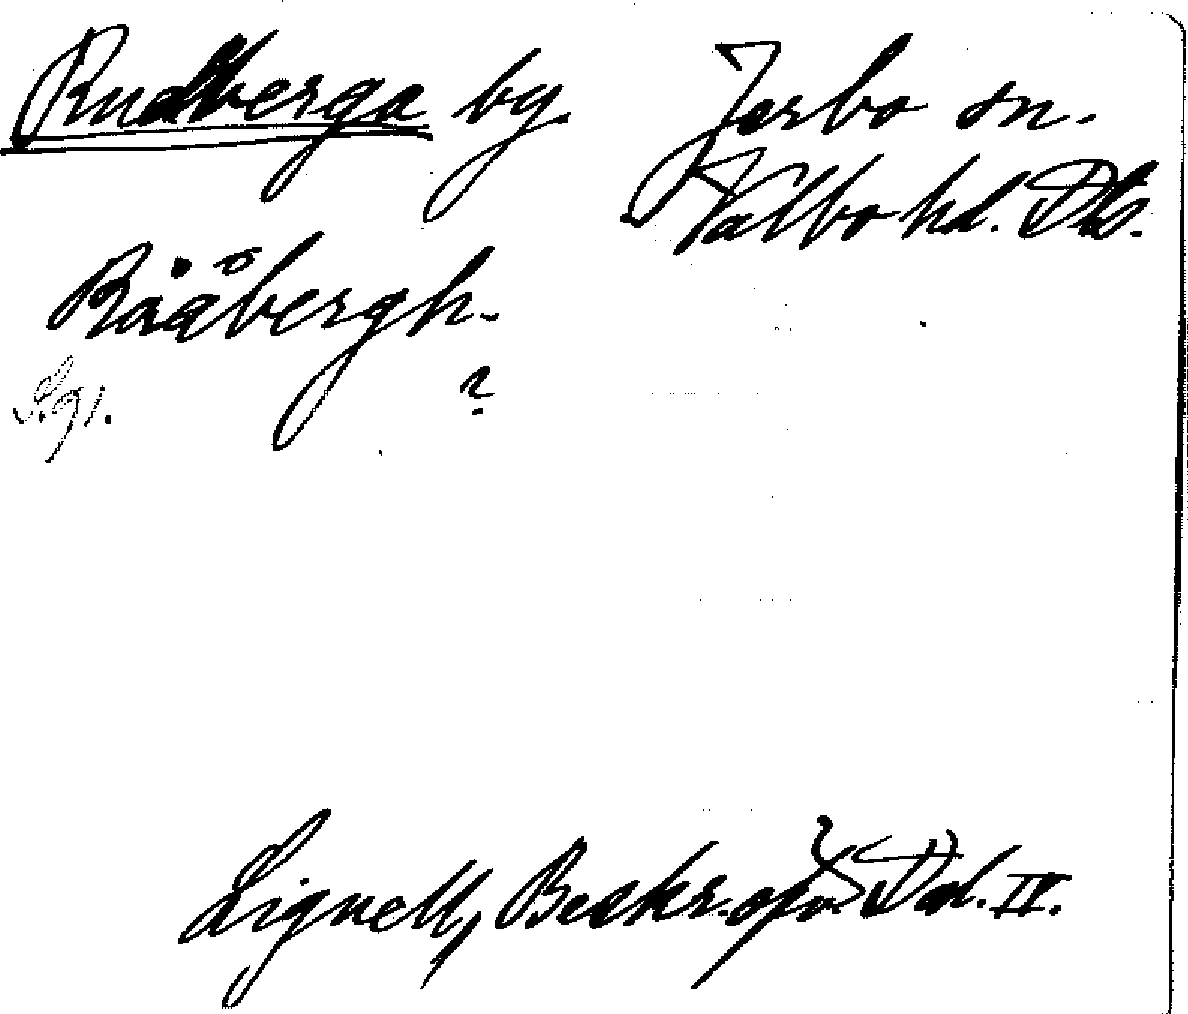 Rudberga by. Jerbo sn.
Valbo hd. Dls.
Rååbergh.
S. 91. ?
Lignell, Beskr. öfv. Dal. II.